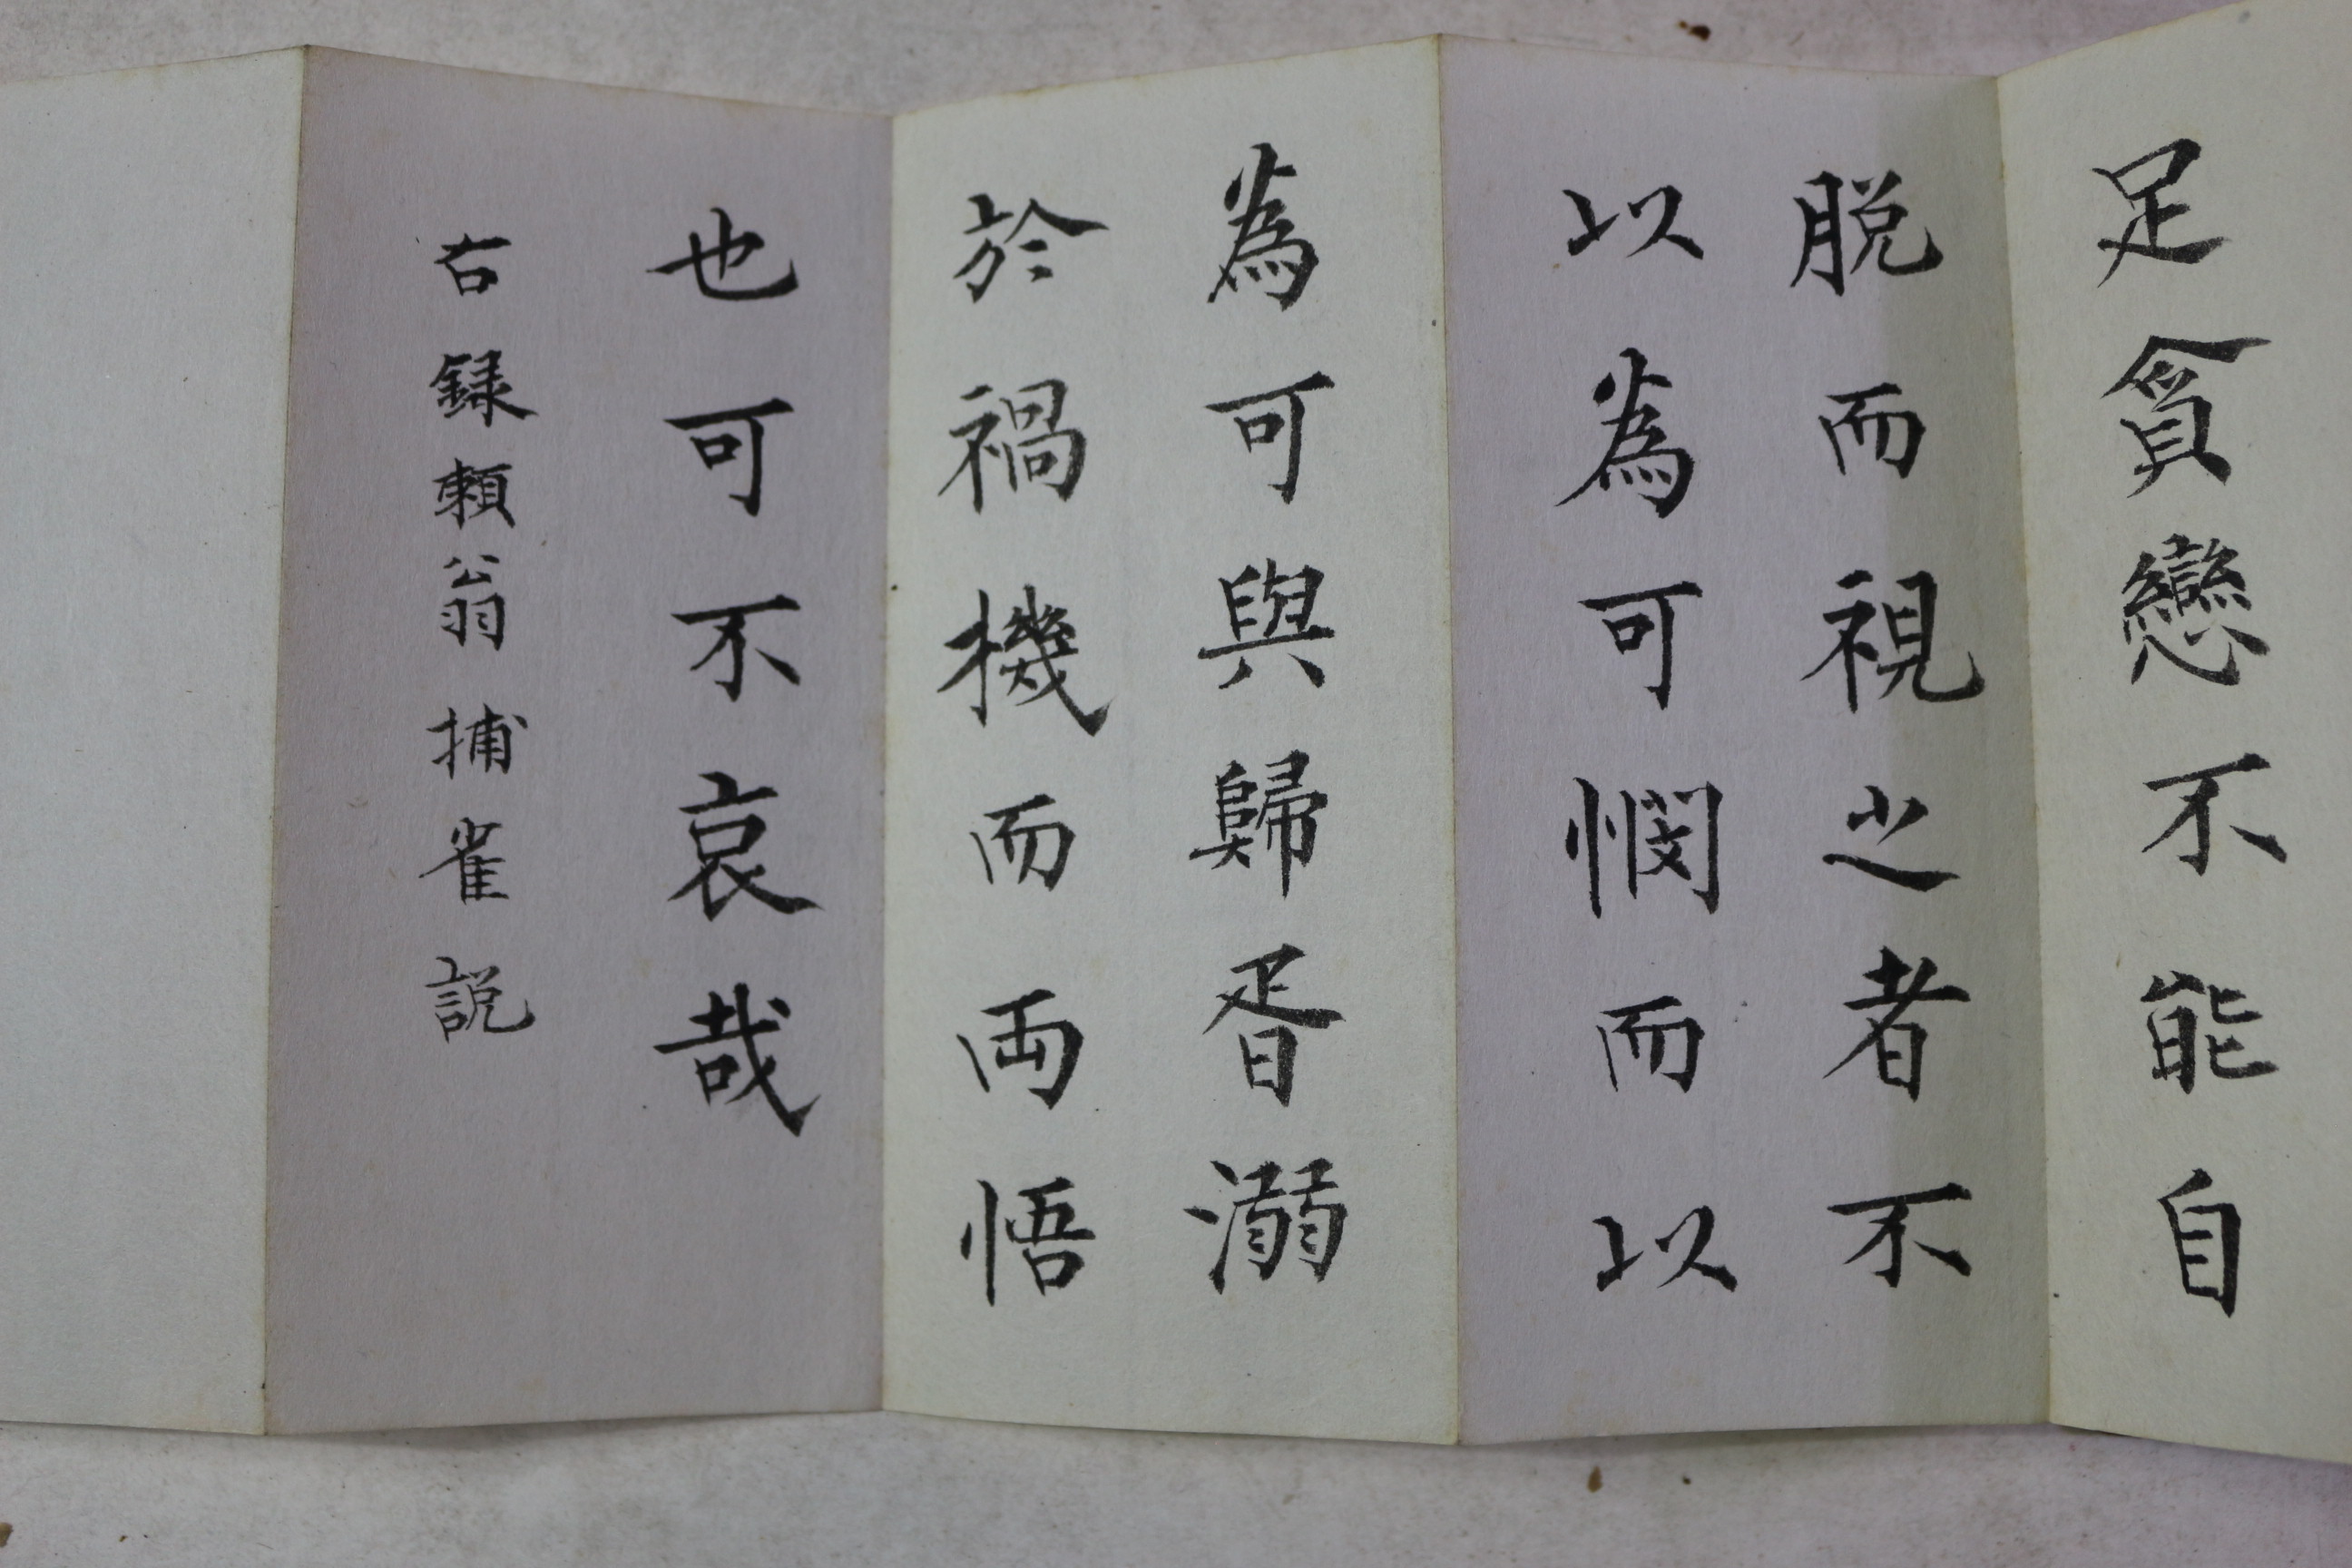 足貪戀不能自
脱而視之者不
以為可憫而以
為可與歸胥溺
於禍機而両悟
也可不哀哉
右録頼翁捕雀説